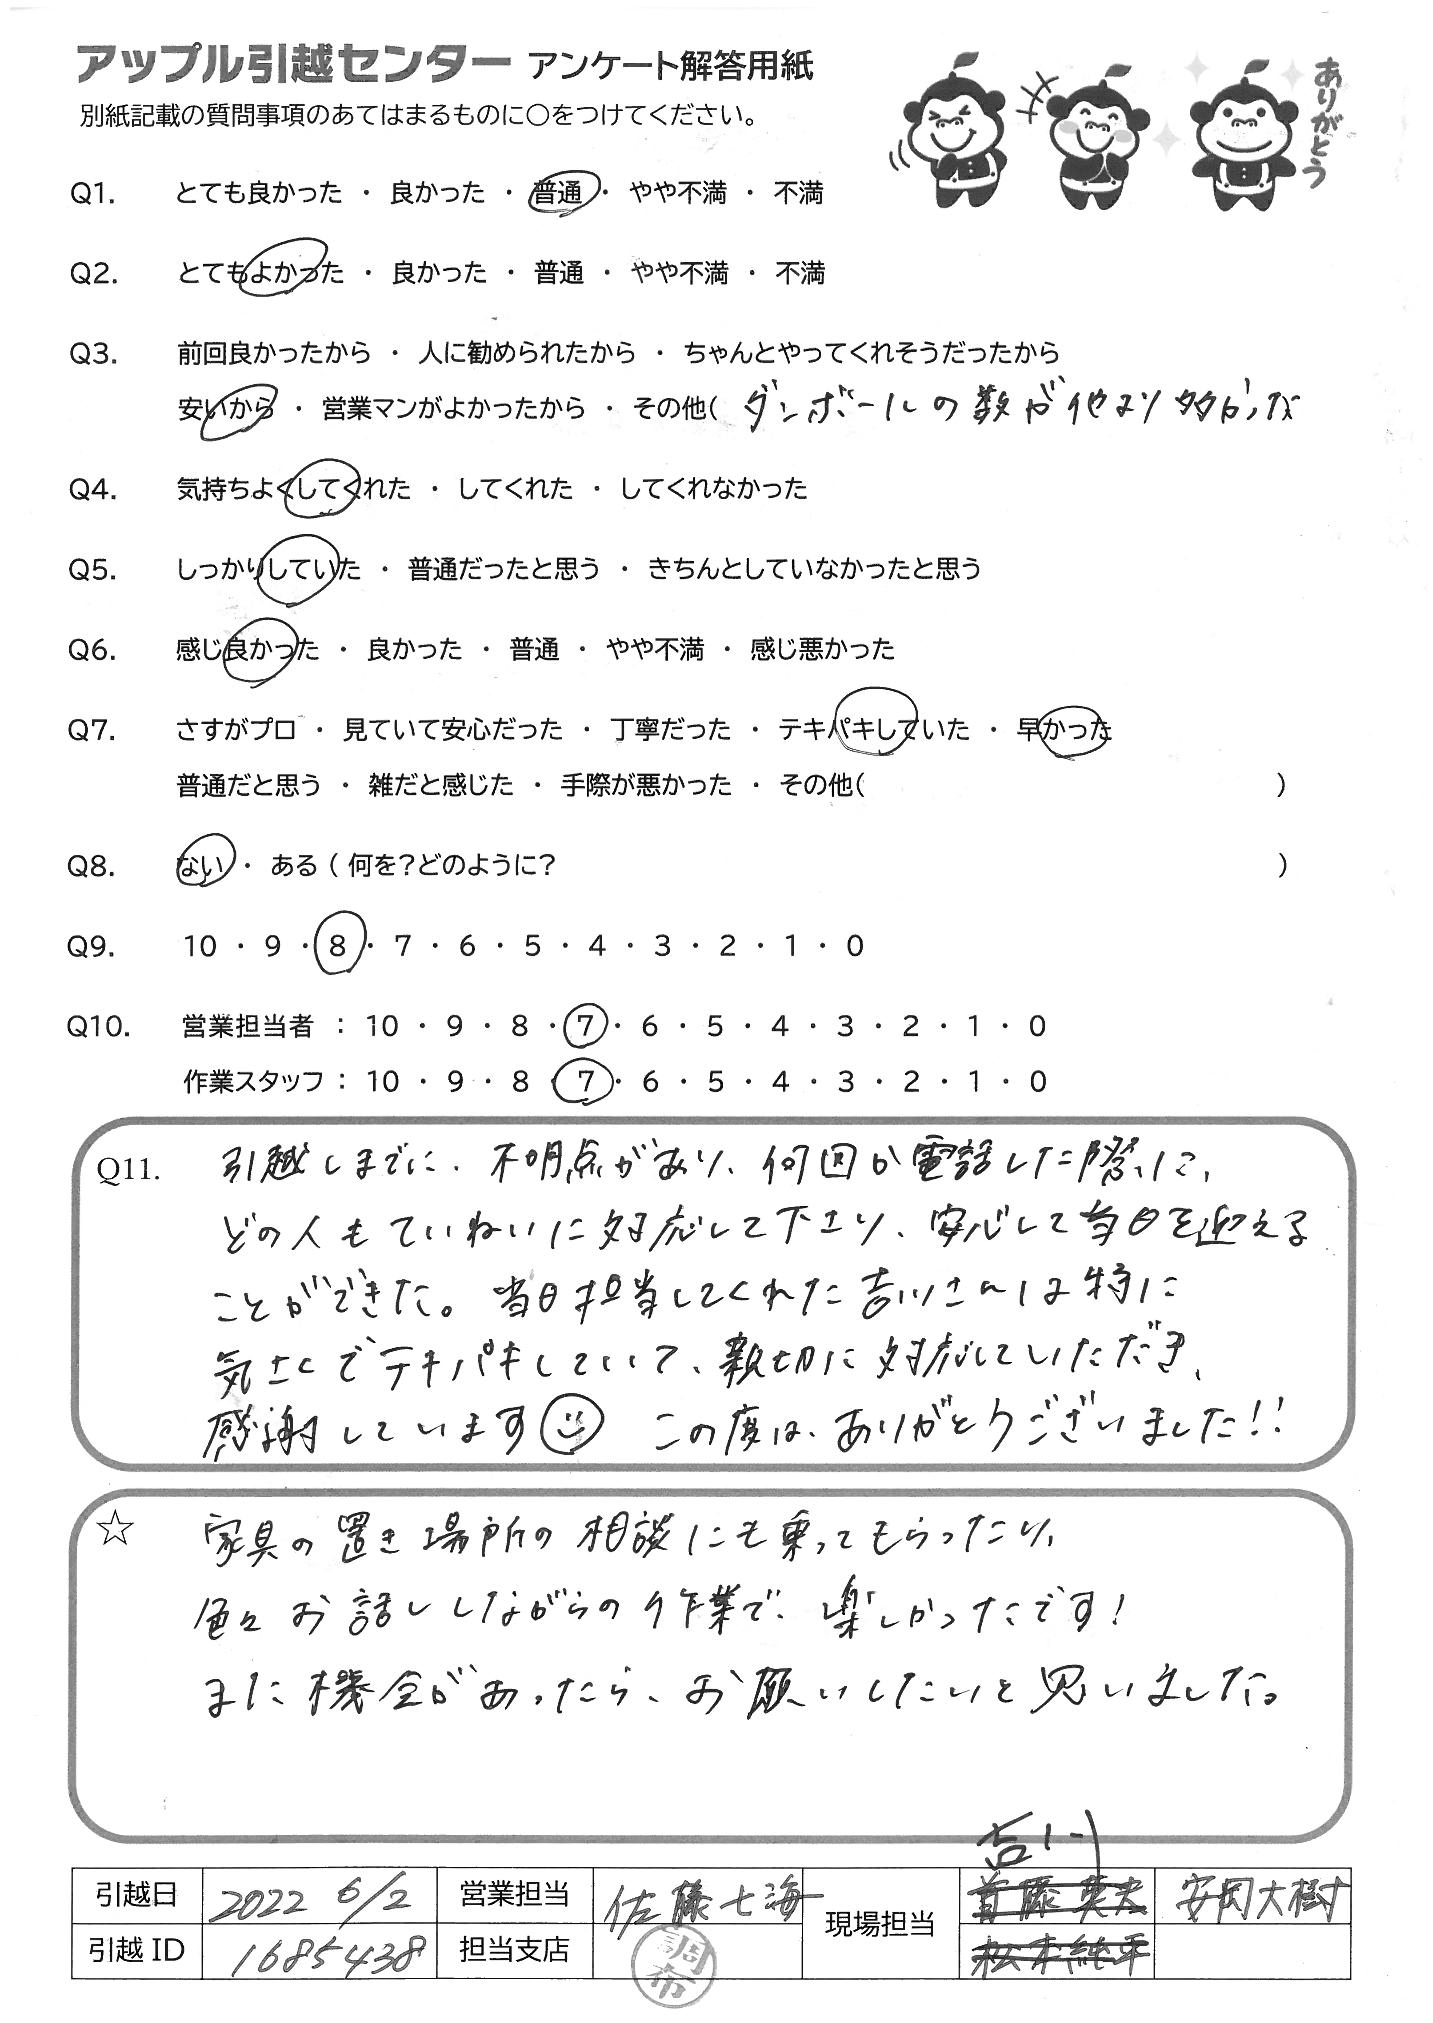 アップル引越センター アンケート解答用紙
別紙記載の質問事項のあてはまるものに○をつけてください。
ありがとう
Q1. とても良かった ・ 良かった ・ 普通 ・ やや不満 ・ 不満
Q2. とてもよかった ・ 良かった ・ 普通 ・ やや不満 ・ 不満
Q3. 前回良かったから ・ 人に勧められたから ・ ちゃんとやってくれそうだったから
安いから ・ 営業マンがよかったから ・ その他( ダンボールの数が他より多かった
Q4. 気持ちよくしてくれた ・ してくれた ・ してくれなかった
Q5. しっかりしていた ・ 普通だったと思う ・ きちんとしていなかったと思う
Q6. 感じ良かった ・ 良かった ・ 普通 ・ やや不満 ・ 感じ悪かった
Q7. さすがプロ ・ 見ていて安心だった ・ 丁寧だった ・ テキパキしていた ・ 早かった
普通だと思う ・ 雑だと感じた ・ 手際が悪かった ・ その他( )
Q8. ない ・ ある ( 何を?どのように? )
Q9. 10 ・ 9 ・ 8 ・ 7 ・ 6 ・ 5 ・ 4 ・ 3 ・ 2 ・ 1 ・ 0
Q10. 営業担当者 : 10 ・ 9 ・ 8 ・ 7 ・ 6 ・ 5 ・ 4 ・ 3 ・ 2 ・ 1 ・ 0
作業スタッフ : 10 ・ 9 ・ 8 ・ 7 ・ 6 ・ 5 ・ 4 ・ 3 ・ 2 ・ 1 ・ 0
Q11. 引越しまでに、不明点があり、何回か電話した際、に、
どの人もていねいに対応して下さり、安心して当日を迎える
ことができた。当日担当してくれた吉川さんは特に
気さくでテキパキしていて、親切に対応していただき、
感謝しています この度は、ありがとうございました!!
☆ 家具の置き場所の相談にも乗ってもらったり、
色々お話ししながらの作業で、楽しかったです!
また機会があったら、お願いしたいと思いました。
吉川
引越日 2022 6/2 営業担当 佐藤七海 現場担当 首藤英夫 安岡大樹
引越 ID 1685438 担当支店 調布 松本純平